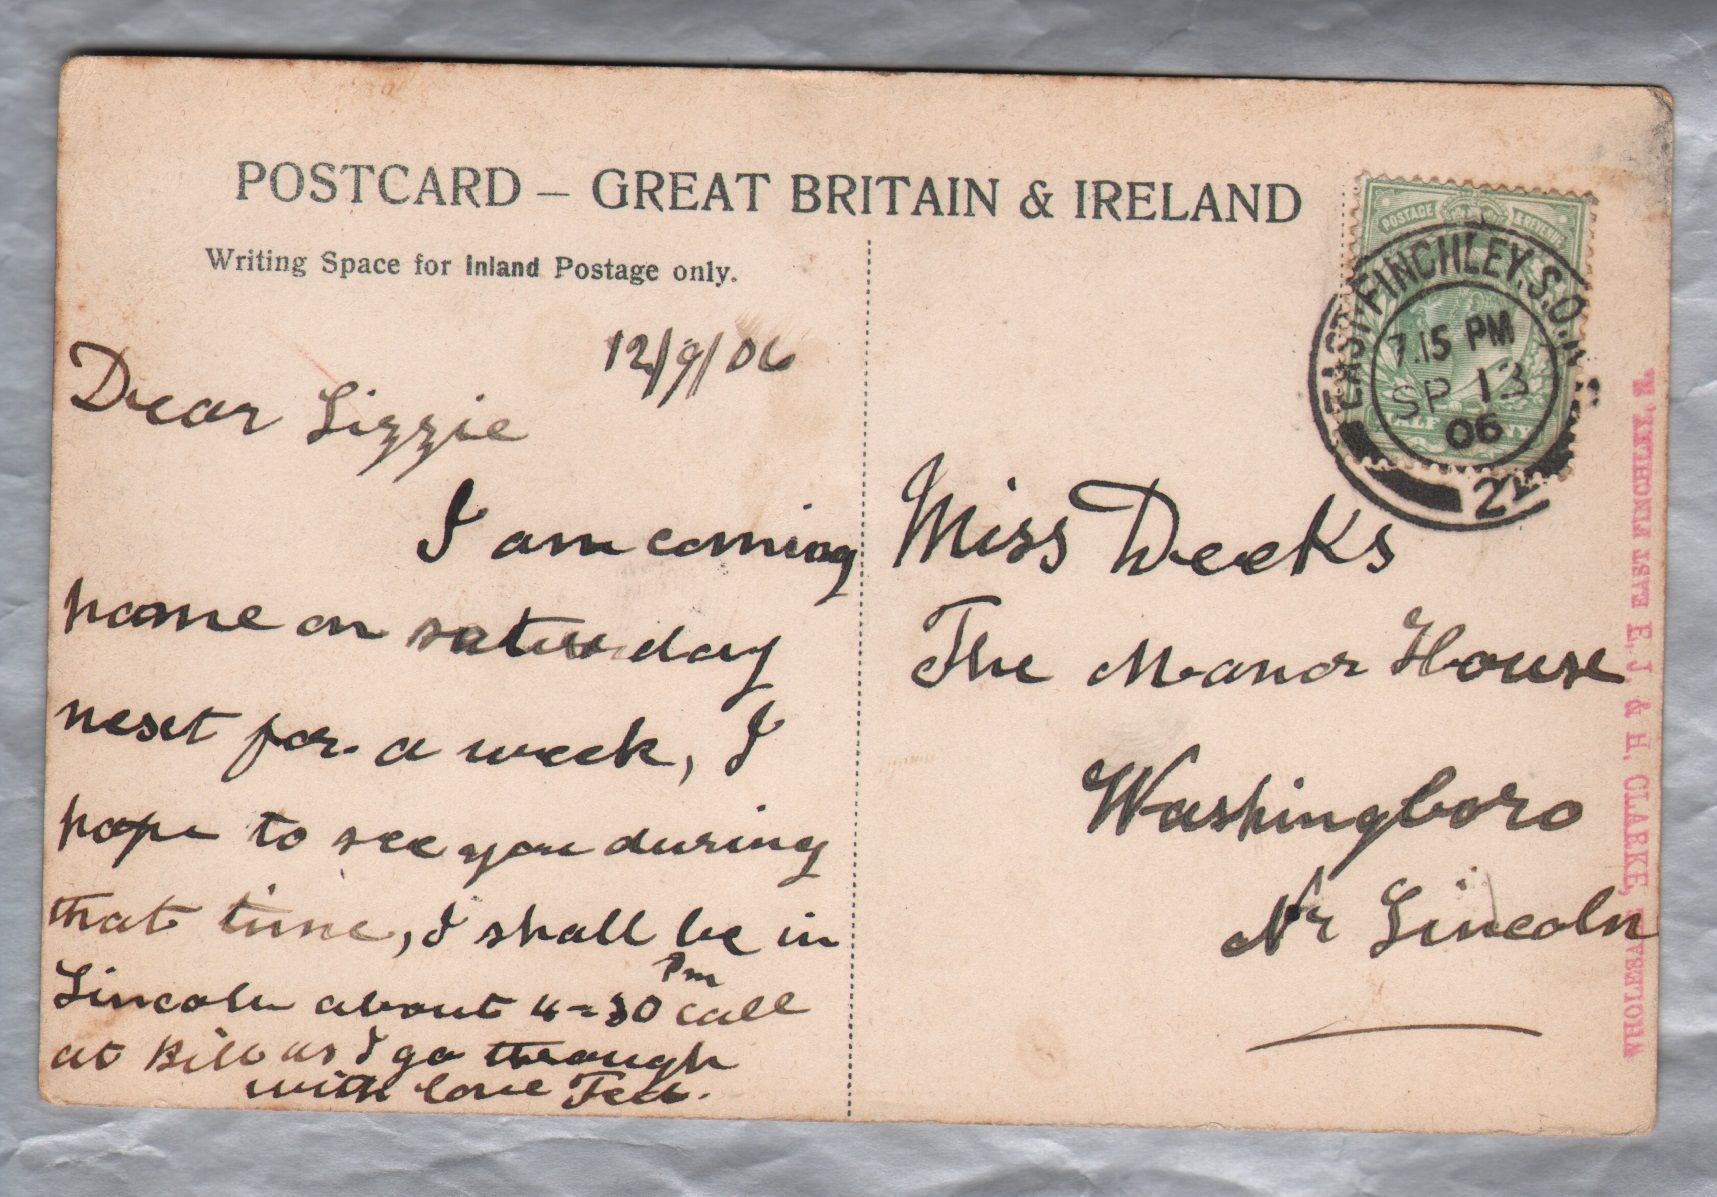 POSTCARD – GREAT BRITAIN & IRELAND
Writing Space for Inland Postage only.
12/9/06
Dear Lizzie
I am coming
home on saturday
next for a week, I
hope to see you during
that time, I shall be in
Lincoln about 4-30 pm call
at Bill as I go through
with love Ted.
POSTAGE & REVENUE
HALFPENNY
EAST FINCHLEY. S.O.
7.15 PM
SP 13
06
Miss Deeks
The Manor House
Washingboro
Nr Lincoln
E. J. & H. CLARKE, EAST FINCHLEY, N.